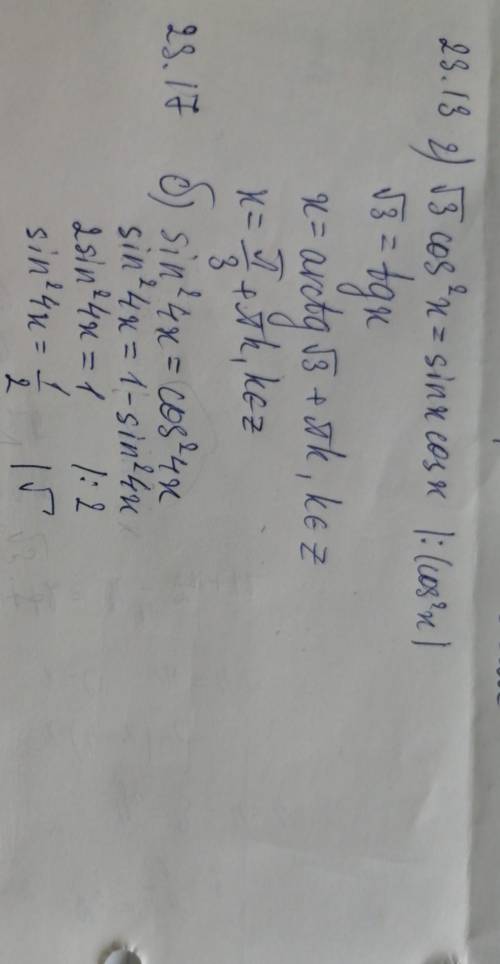 23.13 г) √3 cos²x = sinx cosx |:(cos²x)
√3 = tgx
x = arctg √3 + πk, k∈Z
x = π/3 + πk, k∈Z
23.17 б) sin²4x = cos²4x
sin²4x = 1 - sin²4x
2sin²4x = 1 |:2
sin²4x = 1/2 |√